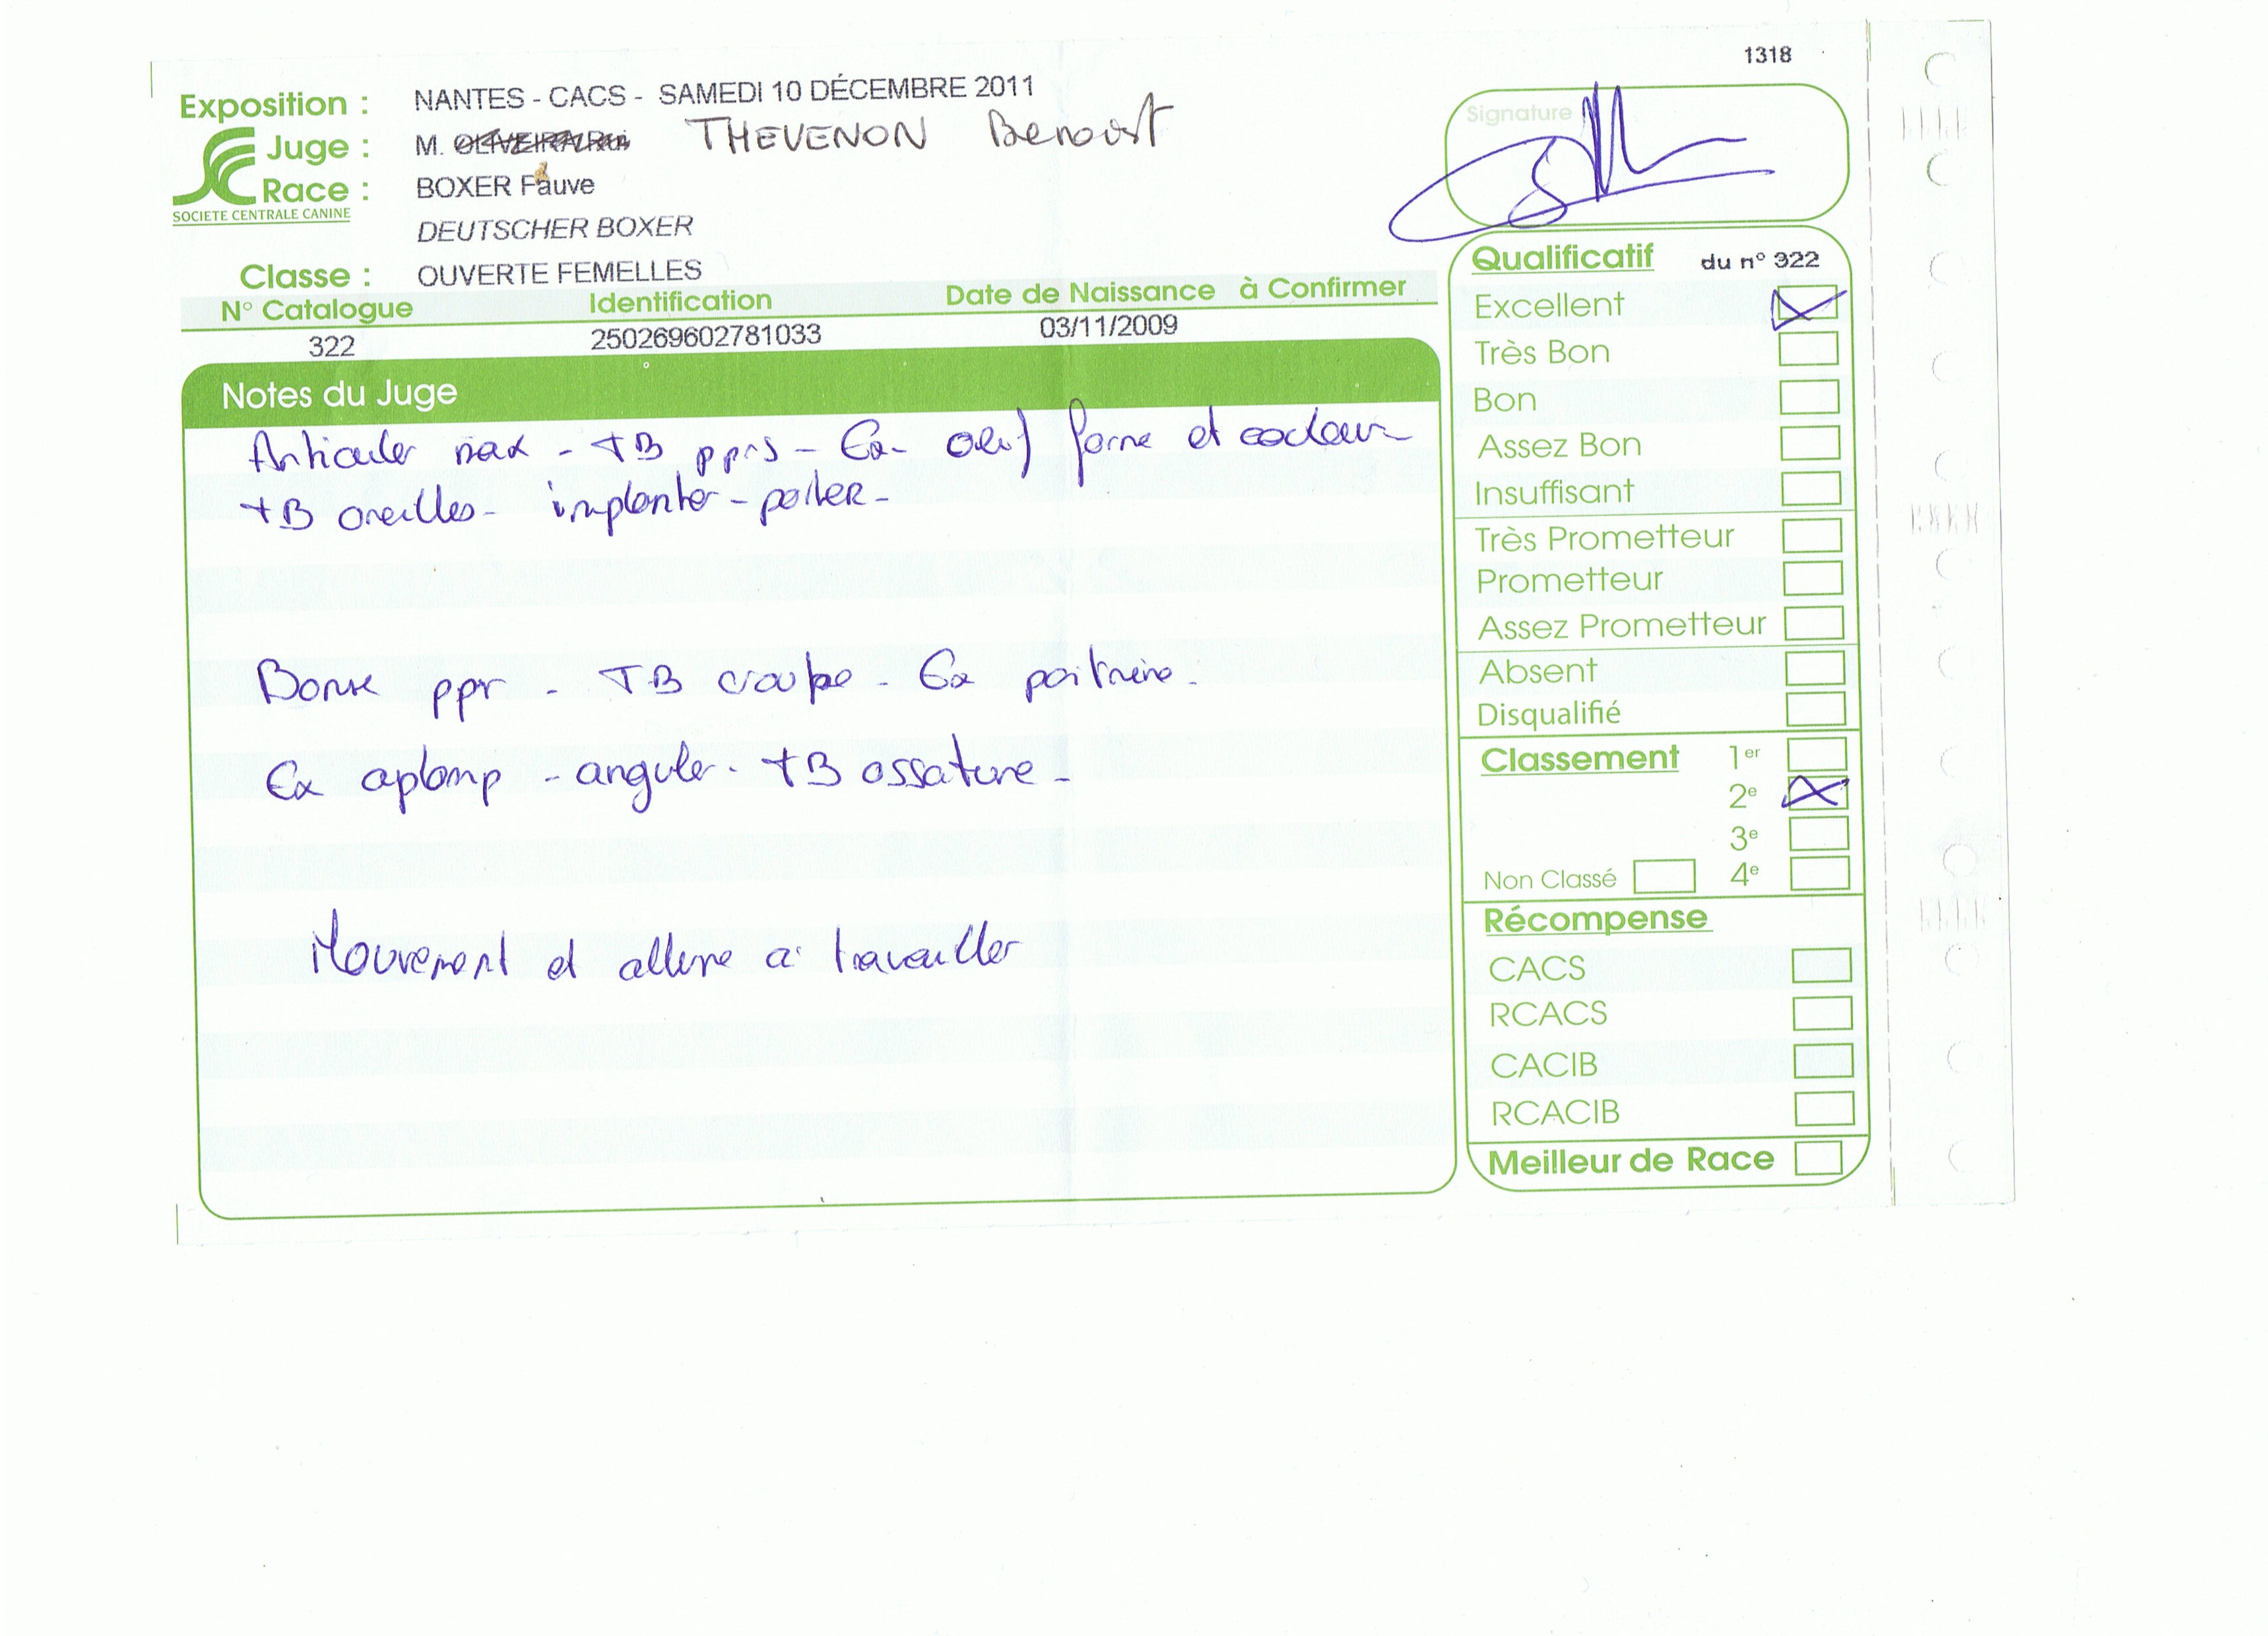 1318
Exposition : NANTES - CACS - SAMEDI 10 DÉCEMBRE 2011
Juge : M. THEVENON Benoist
Race : BOXER Fauve
SOCIETE CENTRALE CANINE
DEUTSCHER BOXER
Classe : OUVERTE FEMELLES
N° Catalogue Identification Date de Naissance à Confirmer
322 250269602781033 03/11/2009
Notes du Juge
Articuler max - TB pprs - Ex - oeuf forme et couleur
TB oreilles - implanter - porter -
Bonne ppr - TB croupe - Ex poitrine -
Ex aplomp - anguler - TB ossature -
Mouvement et allure a travailler
Signature
Qualificatif du n° 322
Excellent
Très Bon
Bon
Assez Bon
Insuffisant
Très Prometteur
Prometteur
Assez Prometteur
Absent
Disqualifié
Classement 1er
2e
3e
Non Classé 4e
Récompense
CACS
RCACS
CACIB
RCACIB
Meilleur de Race